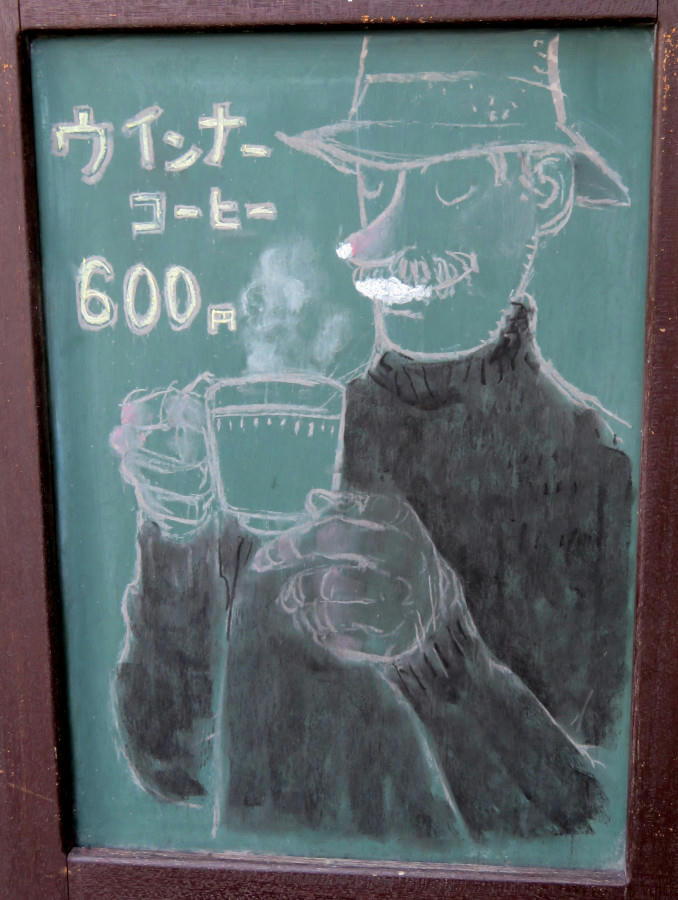 ウインナー
コーヒー
600円